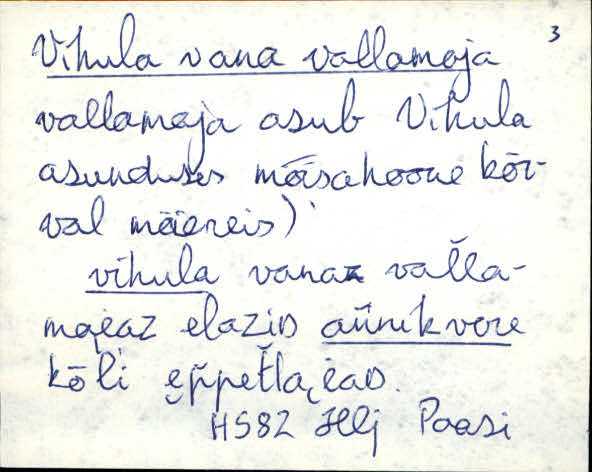 3
Vihula vana vallamaja
vallamaja asub Vihula
asunduses mõisahoone kõr-
val mäereis)
vihula vanaz valla-
majaaz elazid
kõli
HS82 Hlj Paasi